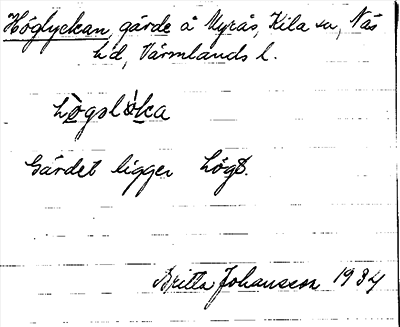 Höglyckan, gärde å Myrås, Kila sn, Näs
hd, Värmlands l.
hògslỳka
Gärdet ligger högt.
Britta Johansson 1934